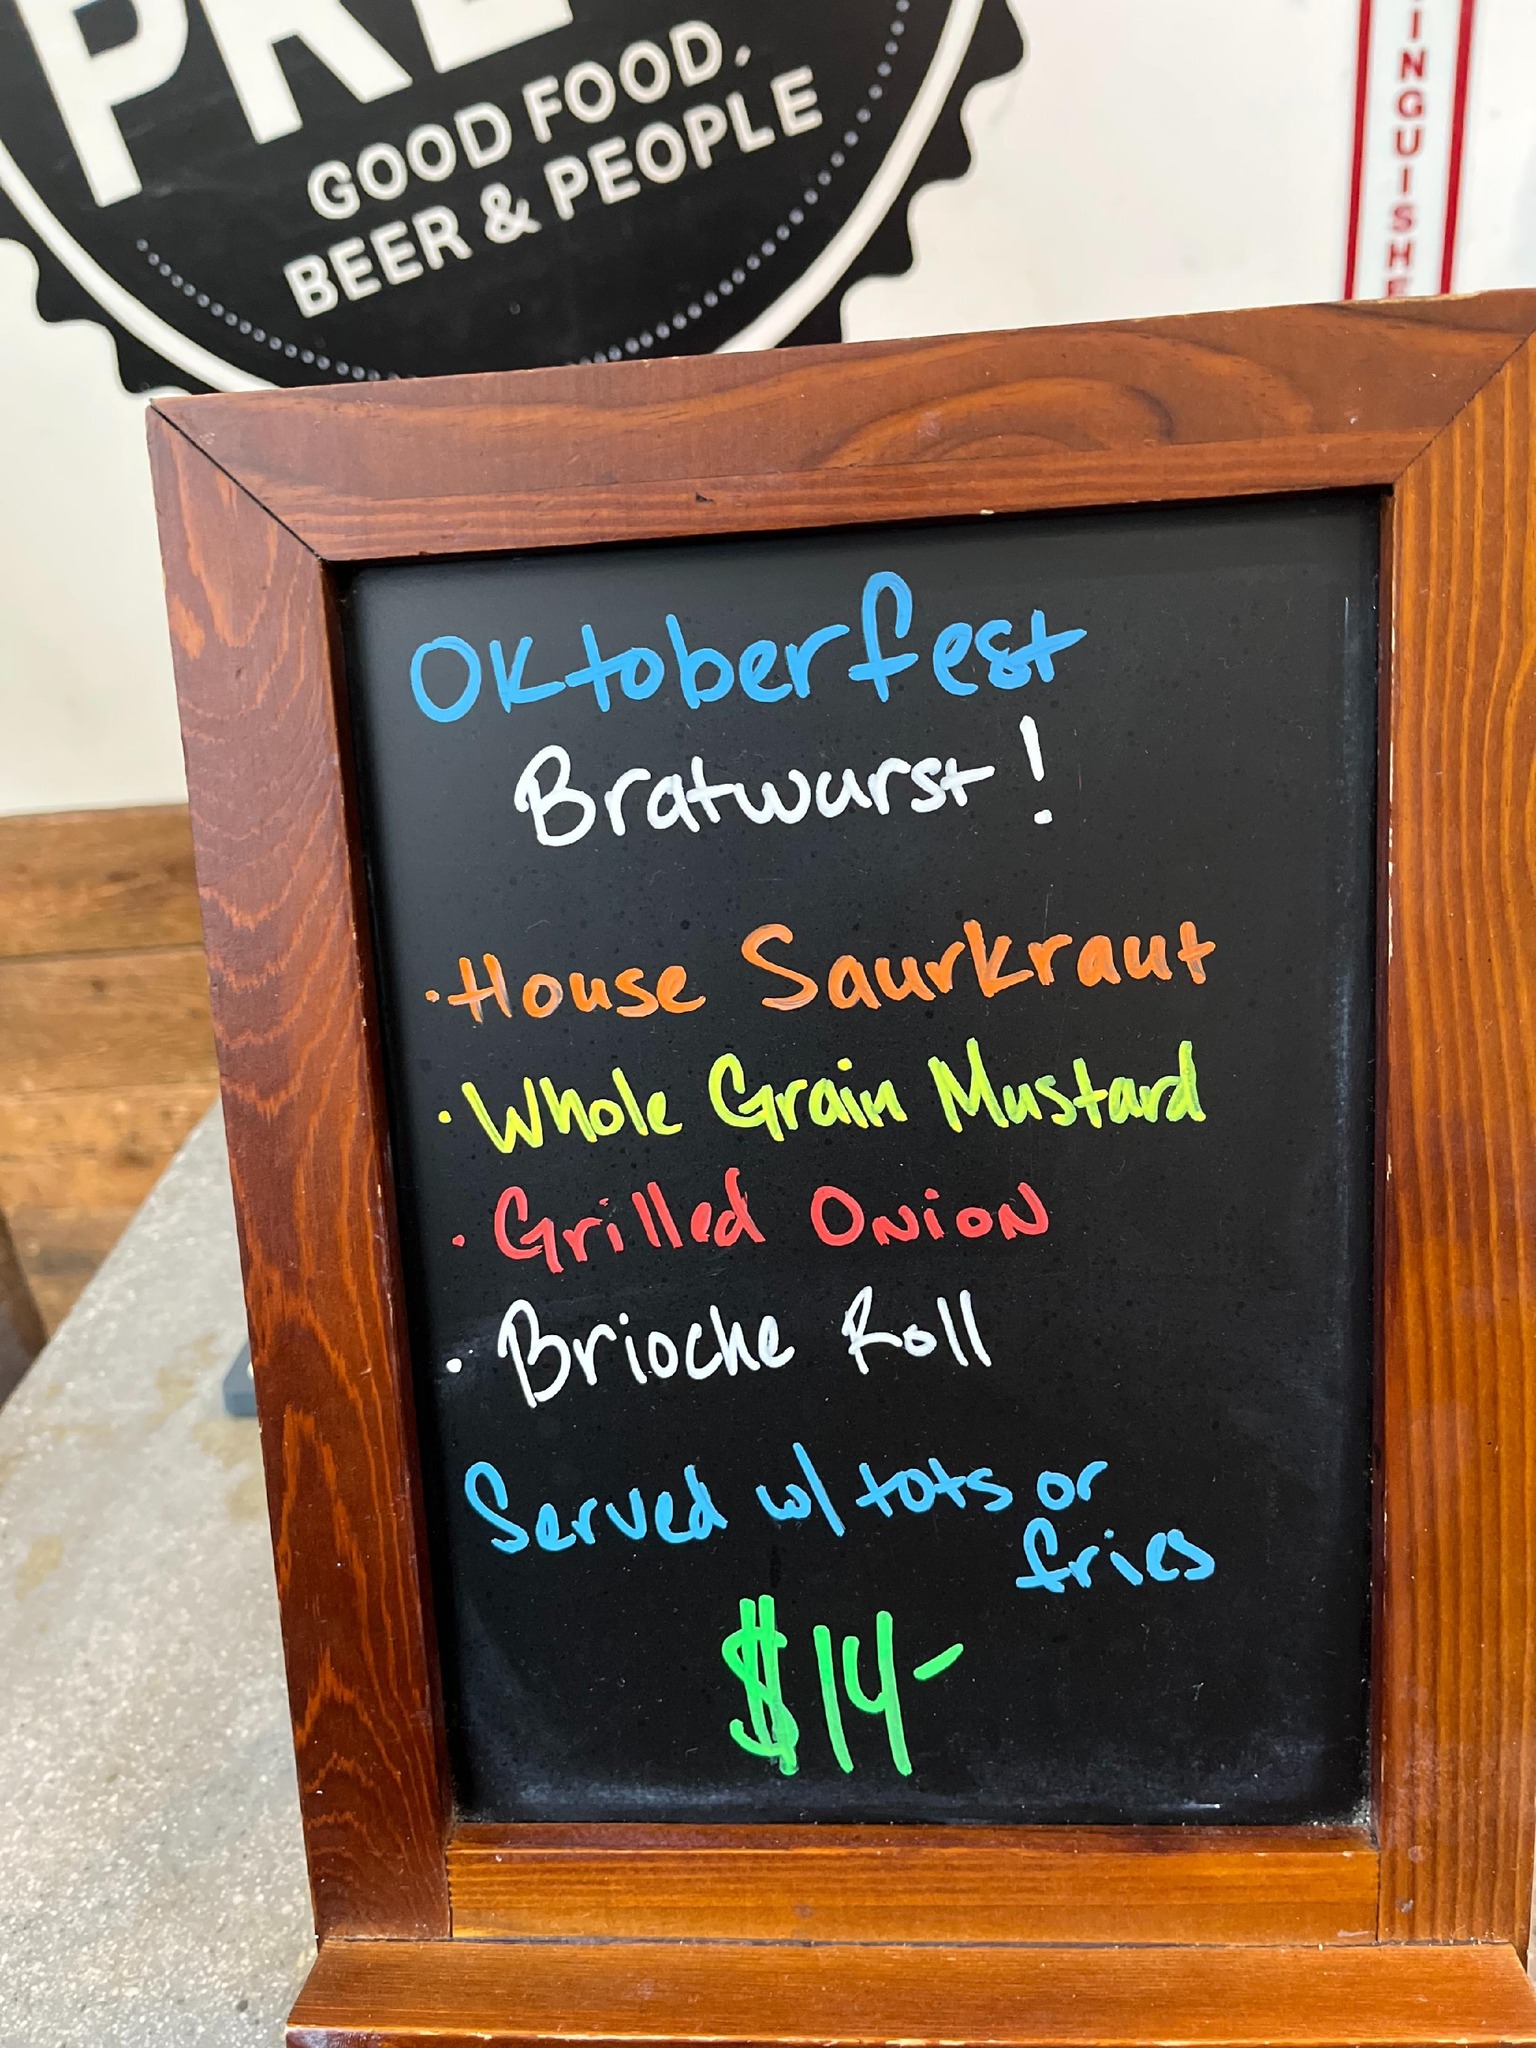 PRE
GOOD FOOD,
BEER & PEOPLE
INGUISHE
Oktoberfest
Bratwurst!
· House Saurkraut
· Whole Grain Mustard
· Grilled Onion
· Brioche Roll
Served w/ tots or
fries
$14-